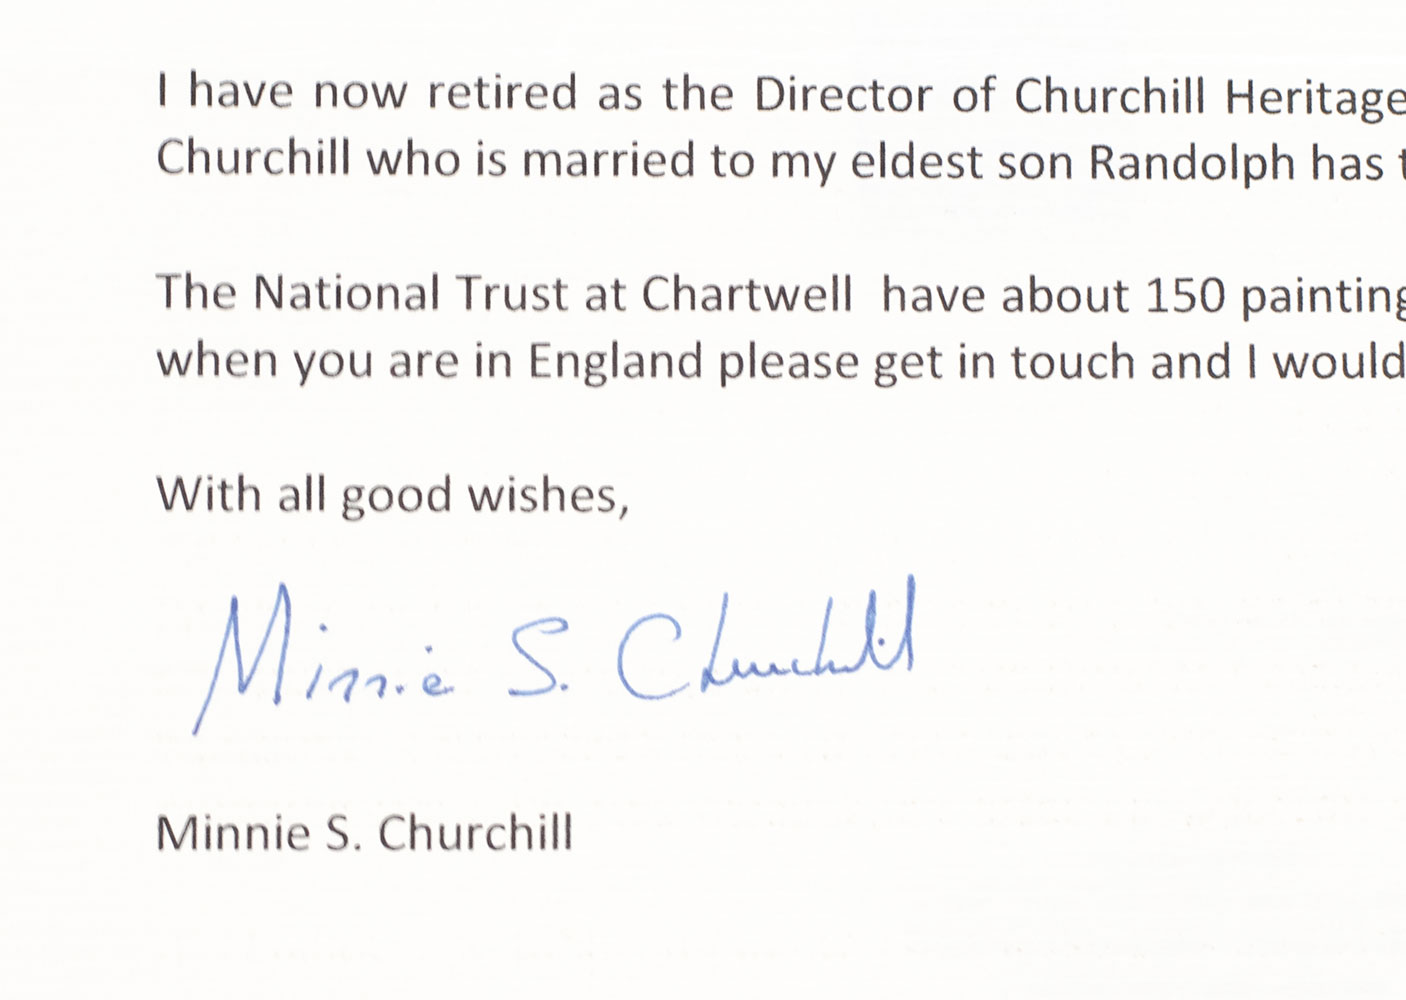 I have now retired as the Director of Churchill Heritage
Churchill who is married to my eldest son Randolph has
The National Trust at Chartwell have about 150 painting
when you are in England please get in touch and I would
With all good wishes,
Minnie S. Churchill
Minnie S. Churchill